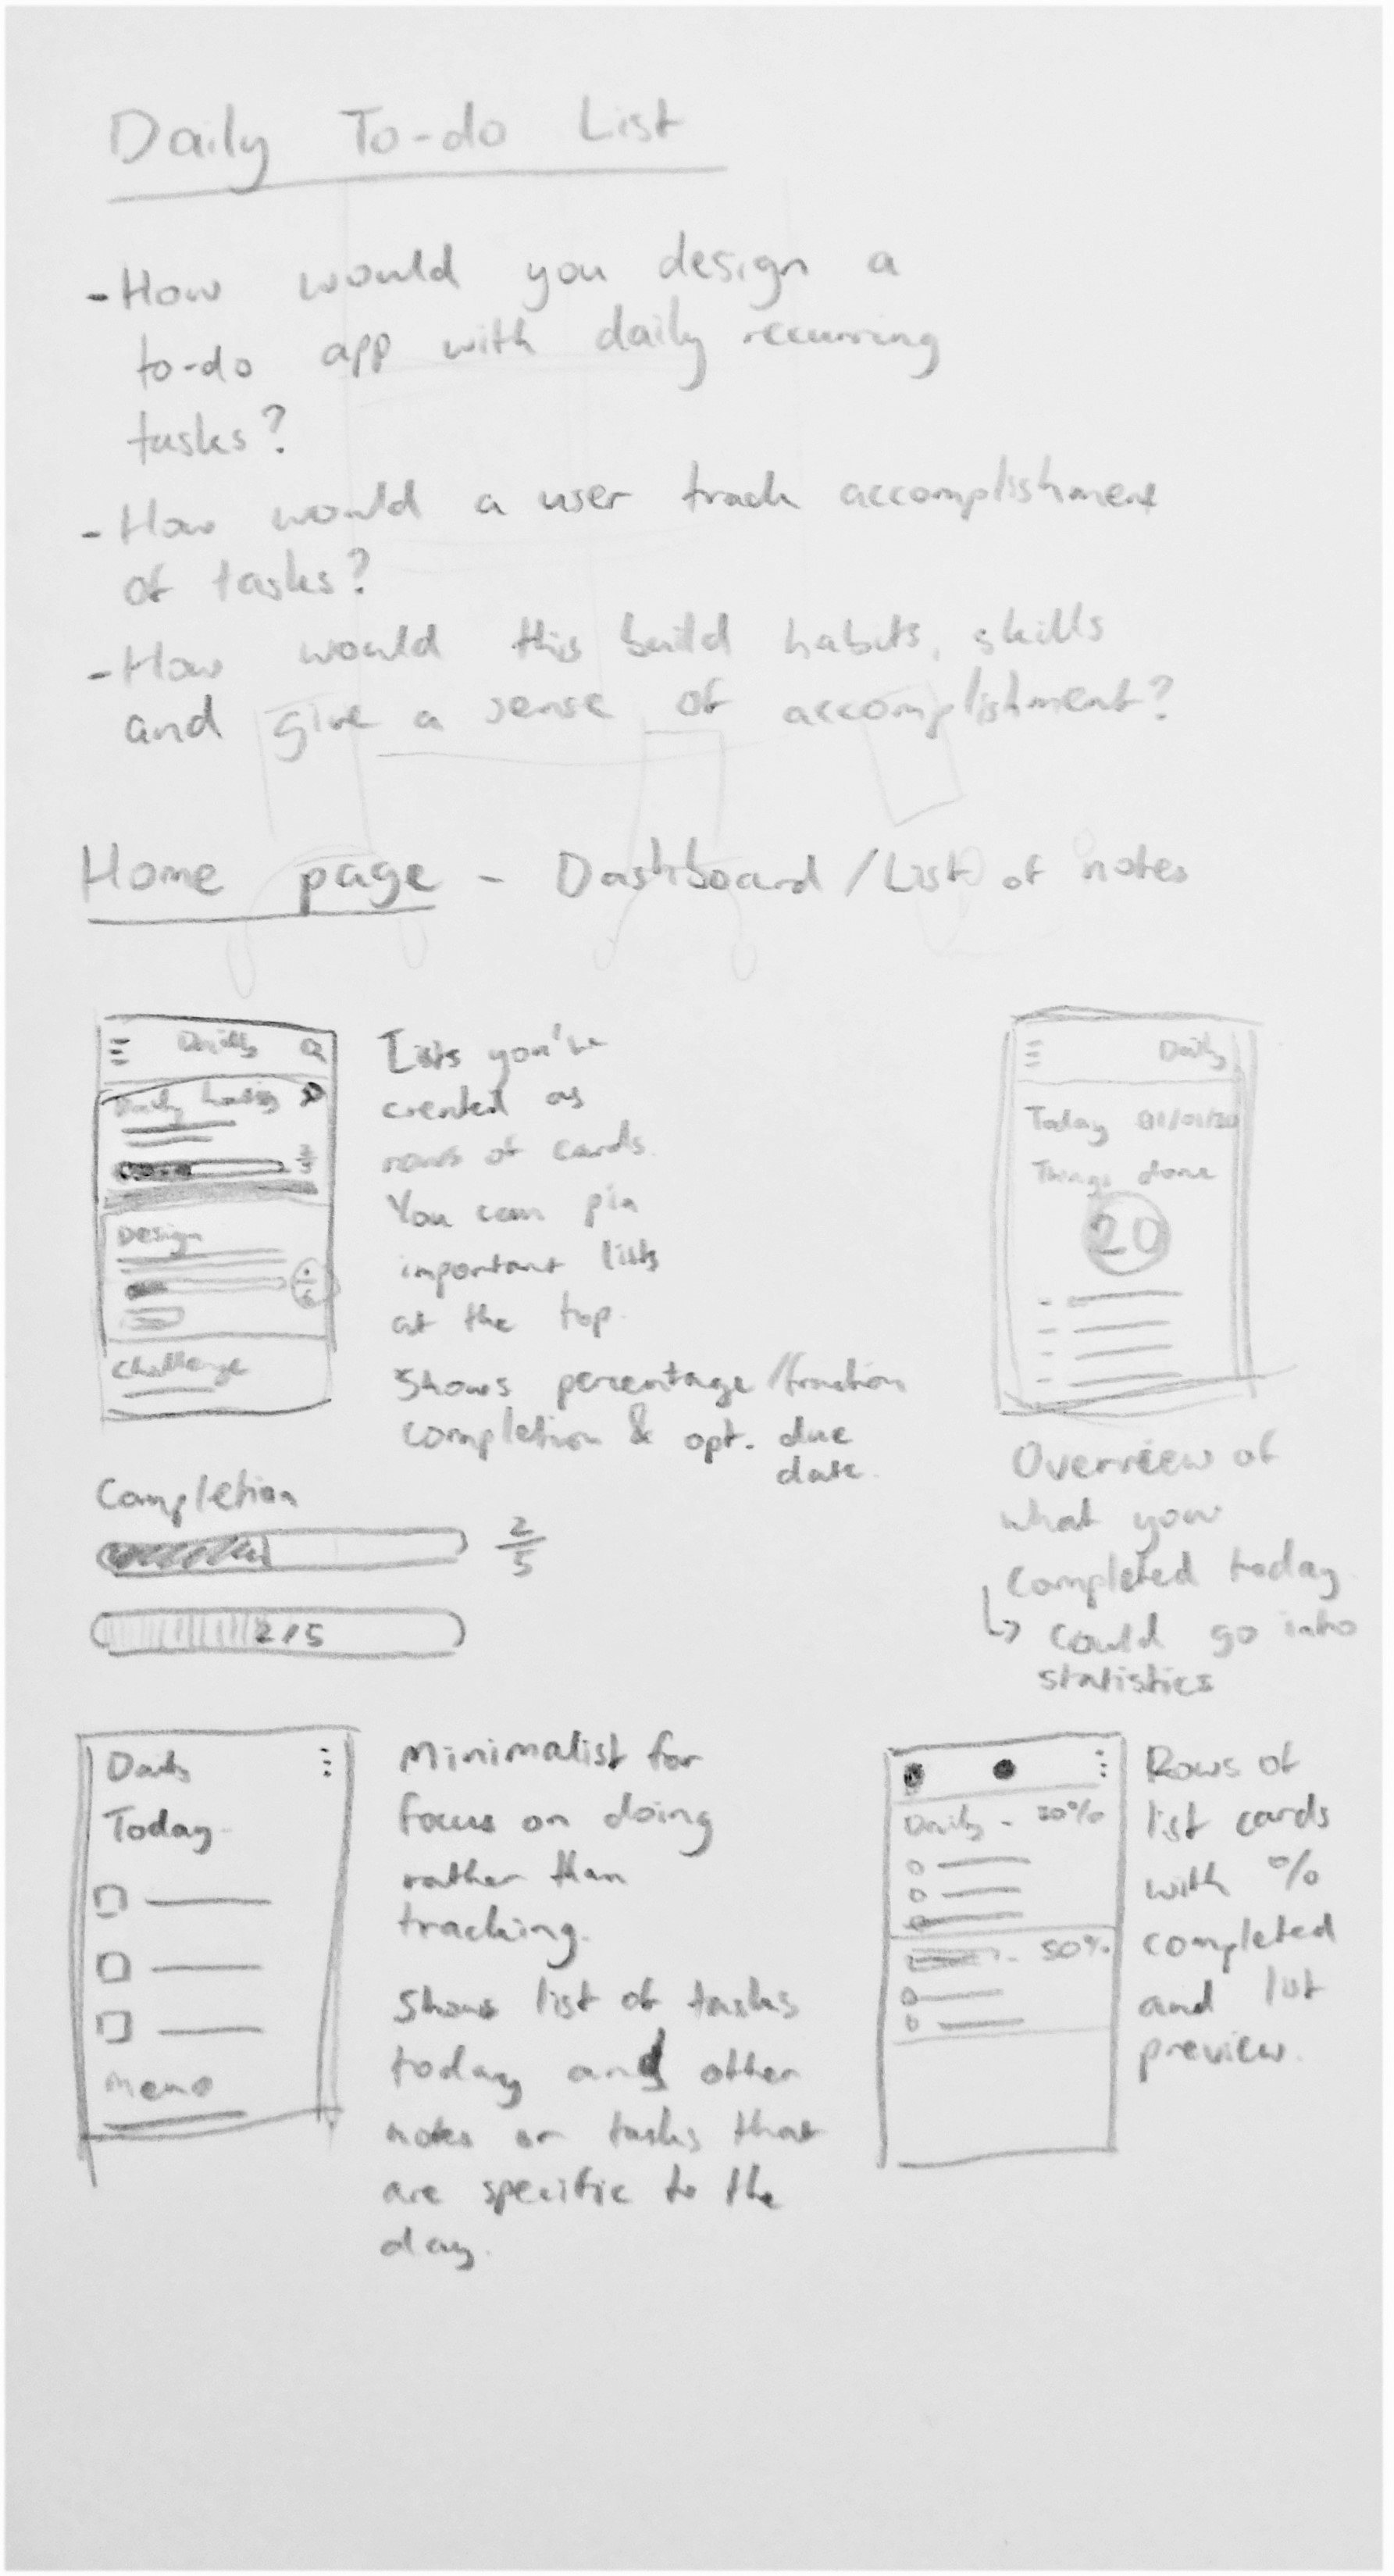 Daily To-do List
- How would you design a
to-do app with daily recurring
tasks?
- How would a user track accomplishment
of tasks?
- How would this build habits, skills
and give a sense of accomplishment?
Home page - Dashboard / List of notes
Daily
Daily
2/3
Design
Challenge
Lists you've
created as
rows of cards.
You can pin
important lists
at the top.
Shows percentage/fraction
completion & opt. due
date.
Daily
Today 01/01/20
Things done
20
Overview of
what you
completed today
↳ could go into
statistics
Completion
2/5
2/5
Daily
Today
Memo
Minimalist for
focus on doing
rather than
tracking.
Shows list of tasks
today and other
notes or tasks that
are specific to the
day.
Daily - 20%
50%
Rows of
list cards
with %
completed
and list
preview.